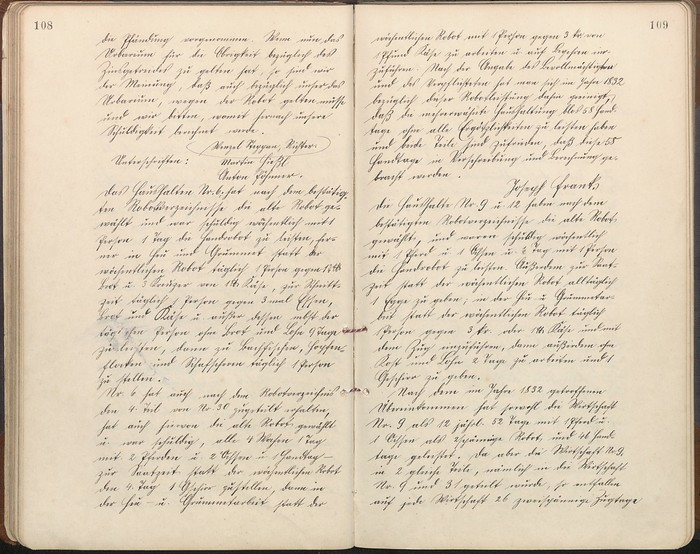 108
die Pfändung vorgenommen. Wenn nun das
Urbarium für die Obrigkeit bezüglich des
Zinsgetreides zu gelten hat, so sind wir
der Meinung, daß auch bezüglich unser das
Urbarium, wegen der Robot gelten müsse
und wir bitten, womit hiernach unsere
Schuldigkeit berechnet werde.
Wenzel Richter
Unterschriften: Martin
Anton
Das Haushalten Nr. 6. hat nach dem bestätig-
ten Robotverzeichnisse die alte Robot ge-
wählt und war schuldig wöchentlich mit 1
Person 1 Tag die Handrobot zu leisten, fer-
ner in Heu und Grummet statt der
wöchentlichen Robot täglich 1 Person gegen
Brot u. 3 Kreuzer von 1 Käse, zur Schnitt-
zeit täglich 1 Person gegen 3 mal Essen,
Brot und Käse u. außer dessen
Person ohne Brot und Lohn 9 Tage
zu leisten, dann zu Hopfen-
und Schafscheren täglich 1 Person
zu stellen.
Nr. 6 hat auch nach dem Robotverzeichnis
den 4. Teil von Nr. 30 zugeteilt erhalten,
hat auch hiervon die alte Robot gewählt
u. war schuldig, alle 4 Wochen 1 Tag
mit 2 Pferden u. 2 Ochsen u. 1 Handtag –
zur Saatzeit statt der wöchentlichen Robot
den 4. Tag 1 Geschirr zustellen, dann in
der Heu- u. Grummetarbeit statt der
109
wöchentlichen Robot mit 1 Person gegen 3 kr. von
1 Pfund Käse zu arbeiten u. auf Begehren ein-
zuführen. Nach der Angabe des Bevollmächtigten
und des Verpflichteten hat man sich im Jahre 1832
bezüglich dieser Robotleistung dahin geeinigt,
daß die mehrerwähnte Haushaltung als 58 Hand-
tage ohne alle Ergötzlichkeiten zu leisten habe
und beide Teile sind zufrieden, daß diese 58
Handtage in Verschreibung und Berechnung ge-
bracht werden.
Joseph Frank
Die Haushalte Nr. 9 u. 12 haben nach dem
bestätigten Robotverzeichnisse die alte Robot
gewählt, und waren schuldig wöchentlich
mit 1 Pferd u. 1 Ochsen u. 2 Tag mit 1 Person
die Handrobot zu leisten. Außerdem zur Saat-
zeit statt der wöchentlichen Robot alltäglich
1 Egge zu geben; in der Heu u. Grummetar-
beit statt der wöchentlichen Robot täglich
1 Person gegen 3 kr. oder Käse und mit
dem Zug einzuführen, dann außerdem ohne
Kost und Lohn 2 Tage zu arbeiten und 1
Geschirr zu geben.
Nach dem im Jahre 1832 getroffenen
Übereinkommen hat sowohl die Wirtschaft
Nr. 9 als 12 jährl. 52 Tage mit 1 Pferd u.
1 Ochsen als 2spännige Robot, und 46 Hand-
tage geleistet. Da aber die Wirtschaft Nr. 9
in 2 gleiche Teile, nämlich in die Wirtschaft
Nr. 9 und 31 geteilt wurde, so entfallen
auf jede Wirtschaft 26 zweispännige Zugtage